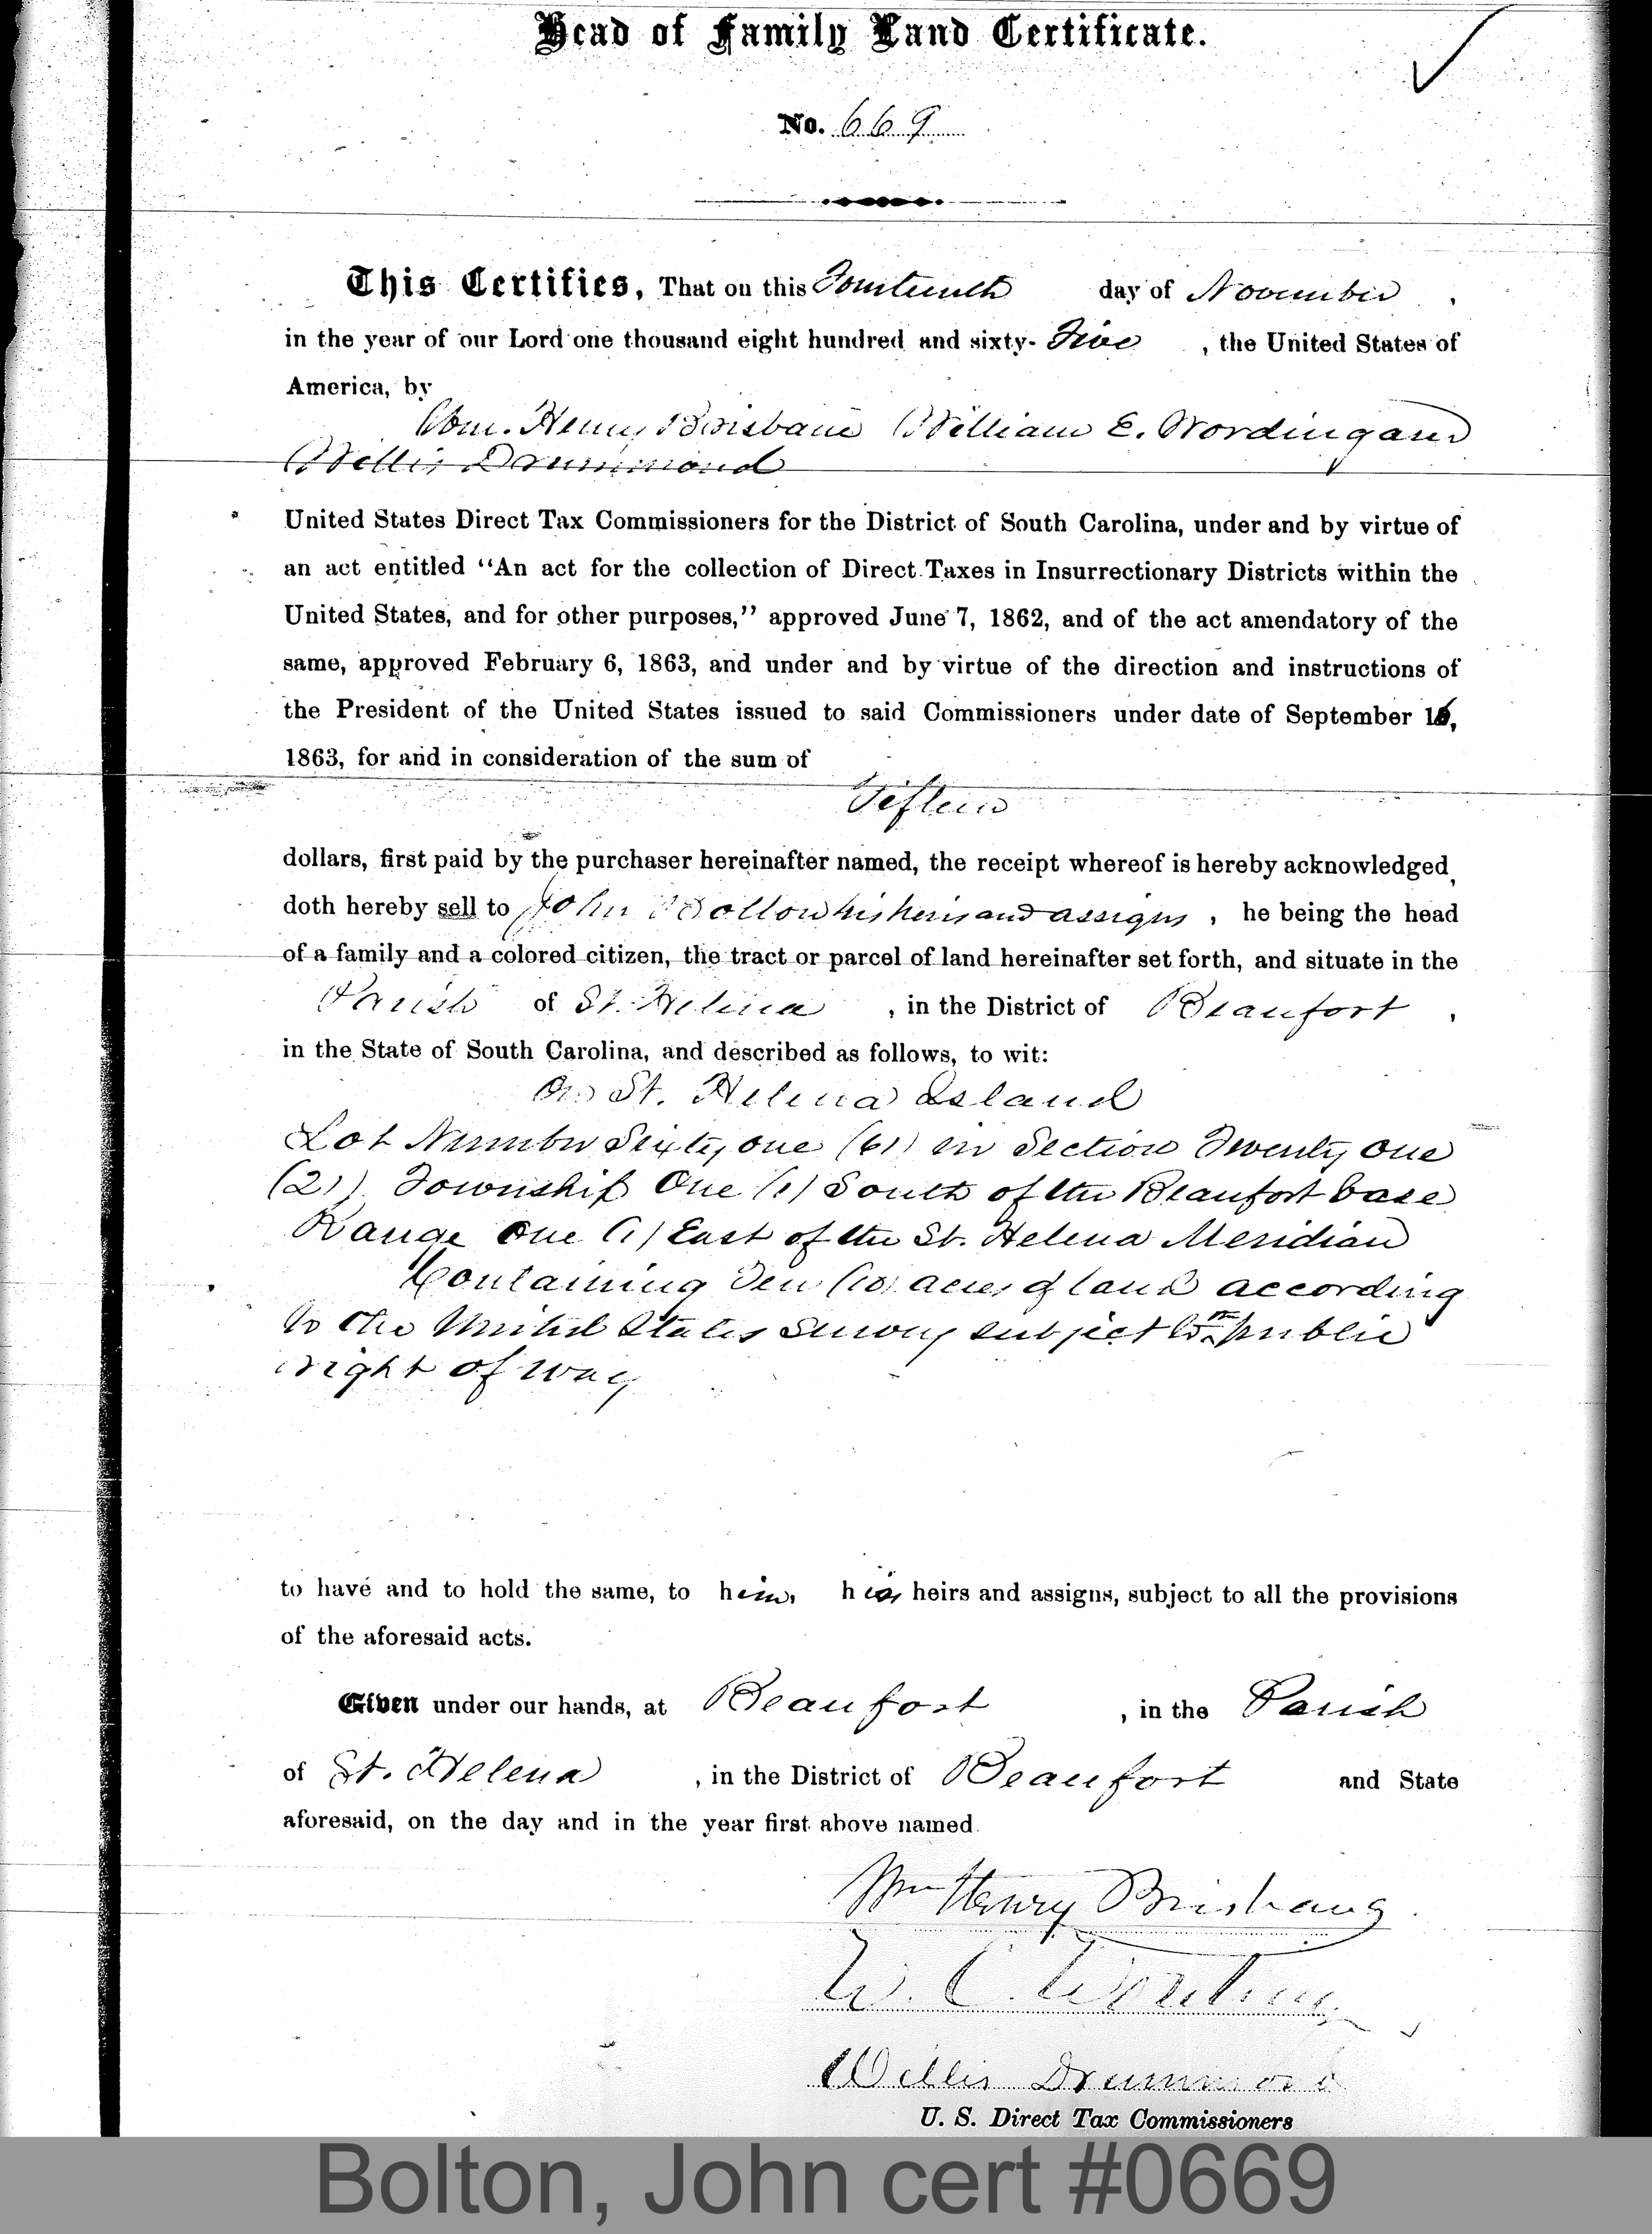 Head of Family Land Certificate.
No. 669
This Certifies, That on this Fourteenth day of November,
in the year of our Lord one thousand eight hundred and sixty- Five, the United States of
America, by
Wm. Henry Brisbane William E. Wording and
Willis Drummond
United States Direct Tax Commissioners for the District of South Carolina, under and by virtue of
an act entitled “An act for the collection of Direct Taxes in Insurrectionary Districts within the
United States, and for other purposes,” approved June 7, 1862, and of the act amendatory of the
same, approved February 6, 1863, and under and by virtue of the direction and instructions of
the President of the United States issued to said Commissioners under date of September 16,
1863, for and in consideration of the sum of
Fifteen
dollars, first paid by the purchaser hereinafter named, the receipt whereof is hereby acknowledged,
doth hereby sell to John Bolton his heirs and assigns, he being the head
of a family and a colored citizen, the tract or parcel of land hereinafter set forth, and situate in the
Parish of St. Helena, in the District of Beaufort,
in the State of South Carolina, and described as follows, to wit:
On St. Helena Island
Lot Number Sixty one (61) in Section Twenty one
(21) Township One (1) South of the Beaufort base
Range One (1) East of the St. Helena Meridian
Containing Ten (10) acres of land according
to the United States Survey subject to the public
right of way
to have and to hold the same, to him, his heirs and assigns, subject to all the provisions
of the aforesaid acts.
Given under our hands, at Beaufort, in the Parish
of St. Helena, in the District of Beaufort and State
aforesaid, on the day and in the year first above named.
Wm Henry Brisbane
W. E. Wording
Willis Drummond
U. S. Direct Tax Commissioners
Bolton, John cert #0669